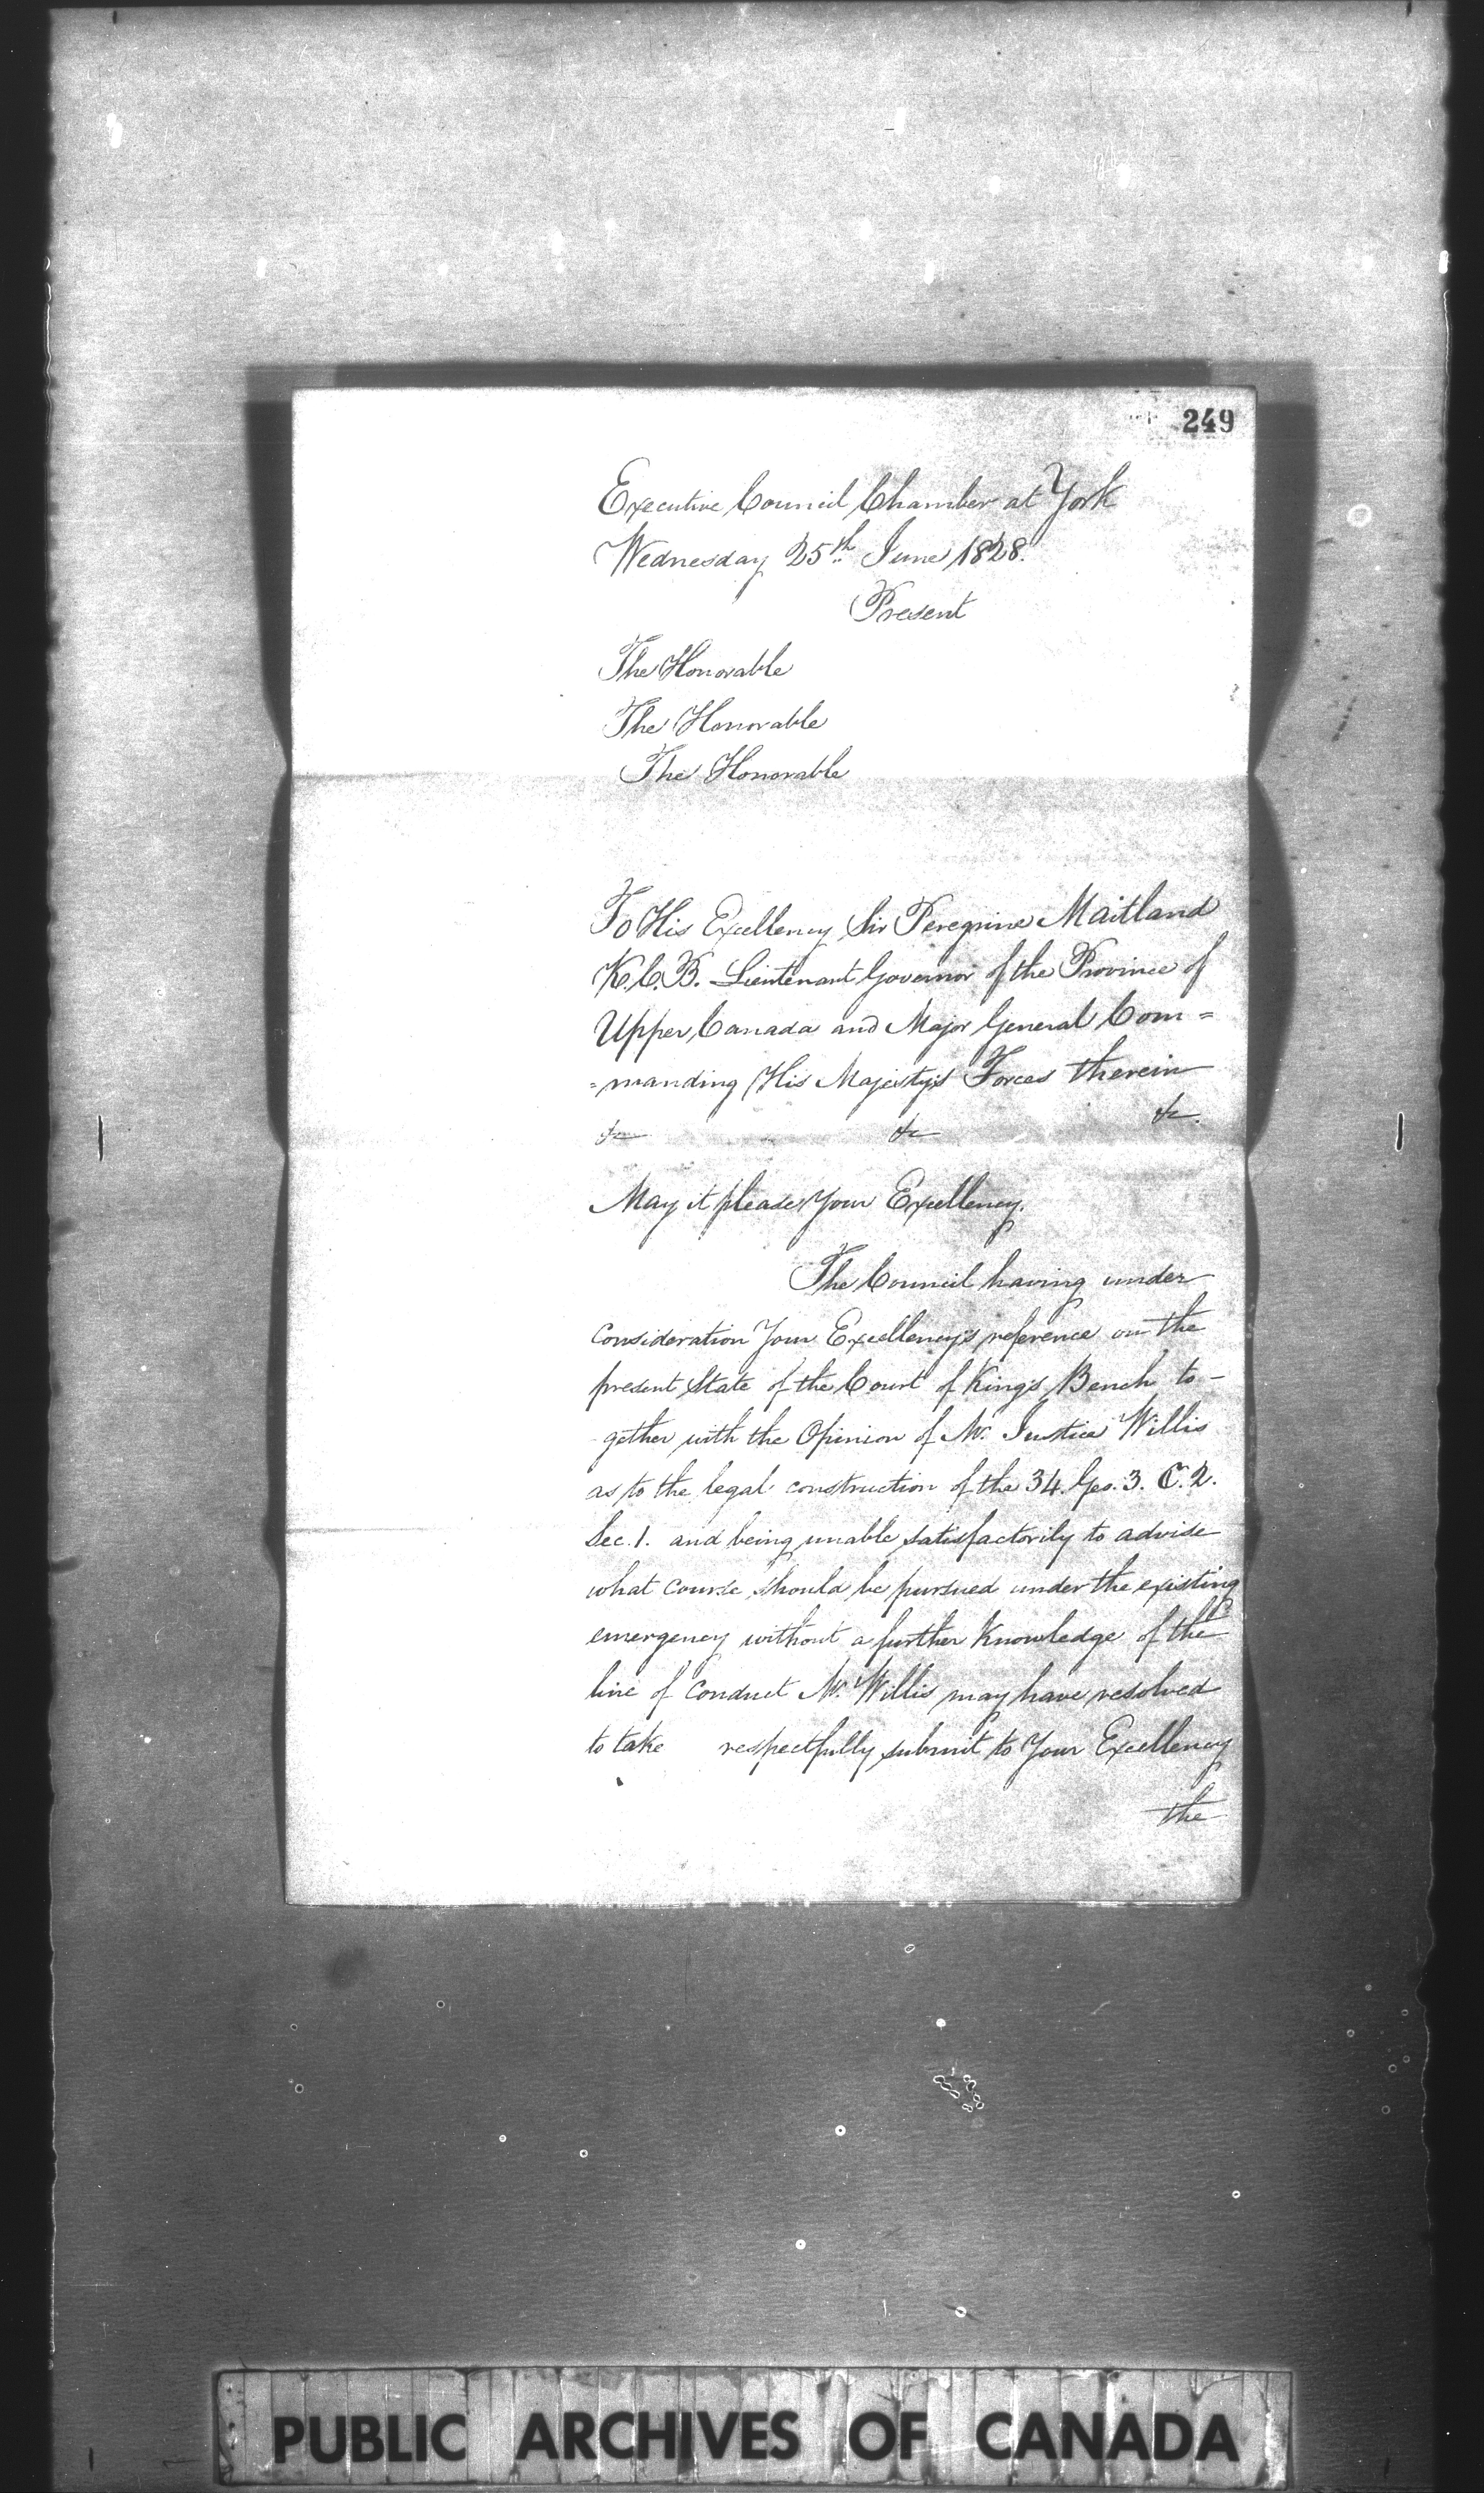 249
Executive Council Chamber at York
Wednesday 25th June 1828.
Present
The Honorable
The Honorable
The Honorable
To His Excellency Sir Peregrine Maitland
K.C.B. Lieutenant Governor of the Province of
Upper Canada and Major General Com=
=manding His Majesty's Forces therein
&c &c &c.
May it please Your Excellency.
The Council having under
consideration Your Excellency's reference on the
present State of the Court of King's Bench to-
gether with the Opinion of Mr. Justice Willis
as to the legal construction of the 34. Geo. 3. C. 2.
Sec. 1. and being unable satisfactorily to advise
what course should be pursued under the existing
emergency without a further Knowledge of the
line of Conduct Mr. Willis may have resolved
to take respectfully submit to Your Excellency
the
PUBLIC ARCHIVES OF CANADA